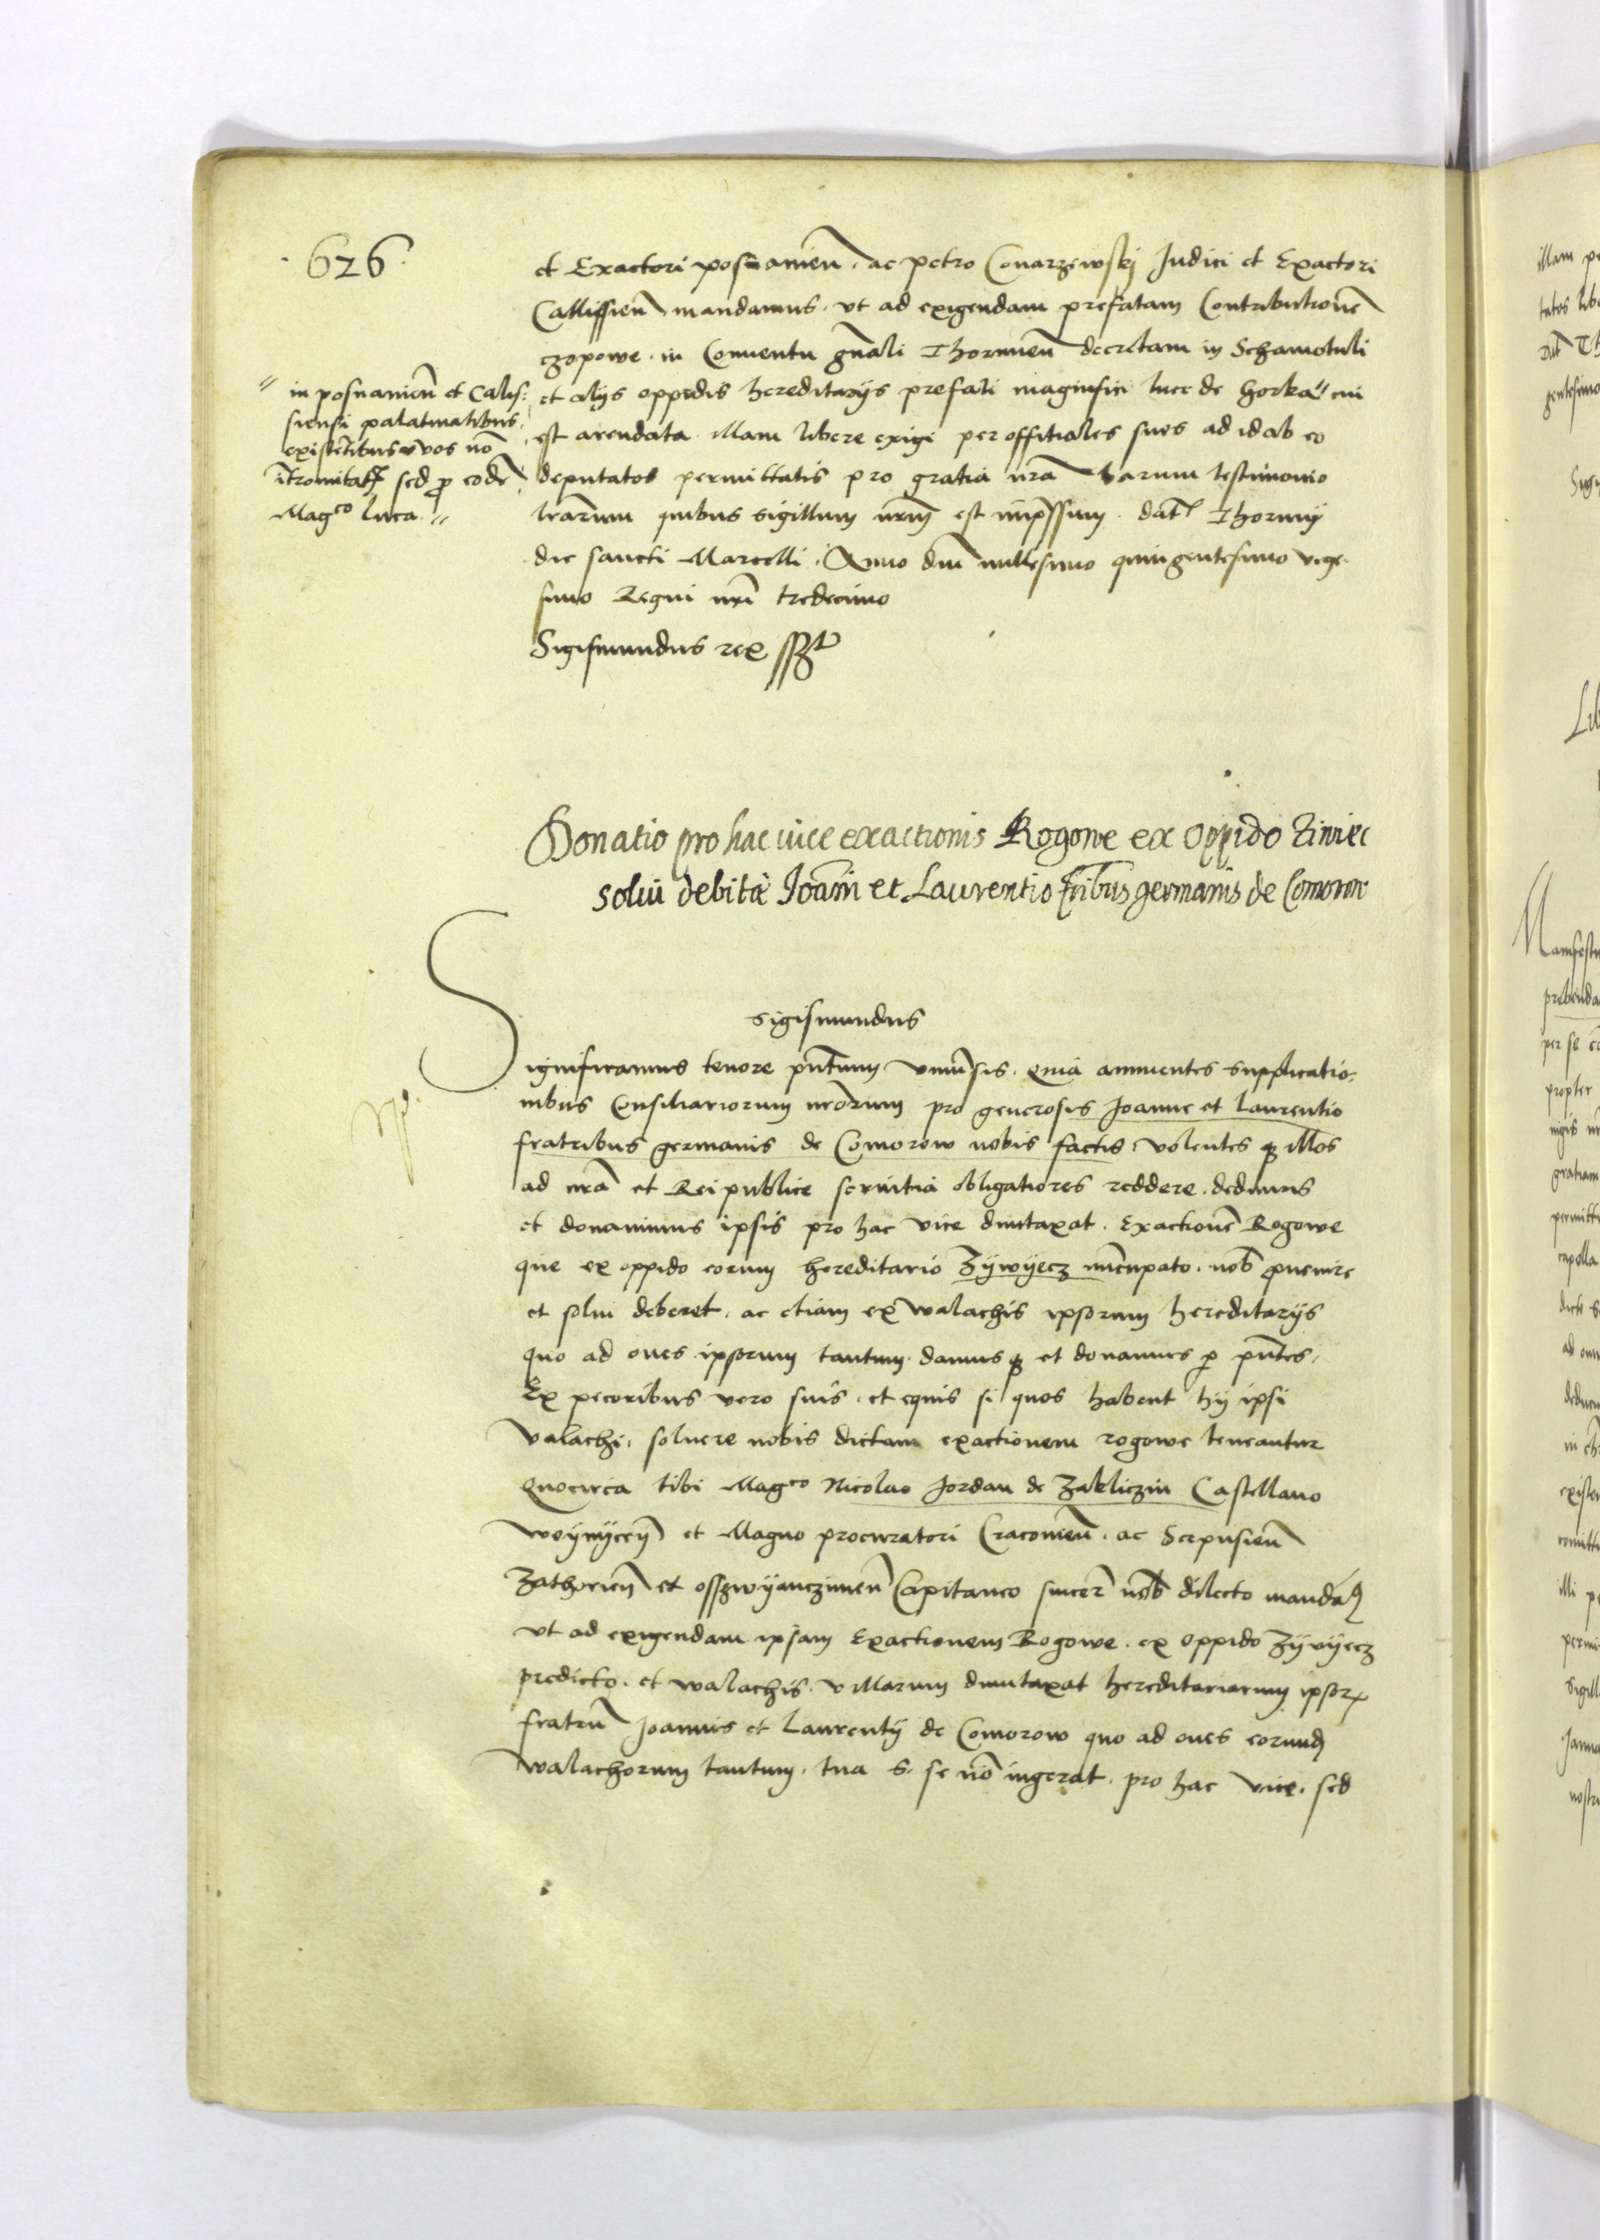 626
et Exactori posnanien̄. ac petro Conarzewskj Judici et Exactori
Callissien̄ mandamus. vt ad exigendam prefatam Contributionē
czopowe. in Conuentu gn̄ali Thorunen̄ decretam in Schamotuli
et alijs oppidis hereditarijs prefati magnifici luce de Gorka " cui
est arendata illam libere exigi per offitiales suos ad id ab eo
deputatos permittatis pro gratia nr̄a harum testimonio
lrārum quibus sigillum nrm̄ est imp̄ssum. dat̄ Thorunij
die sancti Marcelli. Anno dnī millesimo quingentesimo vige-
simo Regni nrī tredecimo
Sigismundus rex sszt
" in posnanien̄ et Calis:
siensi palatinatibus
existētibus vos nō
ītromitat̄ sed p eodē
Magco luca "
Donatio pro hac vice exactionis Rogowe ex Oppido Ziwiec
solui debitę Joanī et Laurentio fr̄ibus germanis de Comorow
Sigismundus
Significamus tenore pn̄tium vniuersis. Quia annuentes supplicatio-
nibus Consiliariorum nrōrum pro generosis Joanne et Laurentio
fratribus germanis de Comorow nobis factis, volentes q illos
ad nrā et Rei publice seruitia obligatiores reddere. dedimus
et donauimus ipsis pro hac vice duntaxat. Exactionē Rogowe
que ex oppido eorum hereditario Zÿwÿecz nūcupato. nob̄ puenire
et solui deberet. ac etiam ex walachis ipsorum hereditarijs
quo ad oues ipsorum tantum. damus q et donamus p pn̄tes.
Ex pecoribus vero suis. et equis si quos habent hij ipsi
valachi. soluere nobis dictam exactionem rogowe teneantur
Quocirca tibi Magco Nicolao Jordan de Zakliczin Castellano
woÿnÿcen̄ et Magno procuratori Cracouien̄. ac Scepusien̄
Zathorien̄ et osszwÿanczimen̄ Capitaneo sincer̄ nob̄ dilecto mandam̄
vt ad exigendam ipsam Exactionem Rogowe. ex oppido Zÿvÿecz
predicto. et walachis. villarum duntaxat hereditariarum ipsor
fratrū Joannis et Laurentij de Comorow quo ad oues eorund
walachorum tantum. tua S. se nō ingerat. pro hac vice. sed